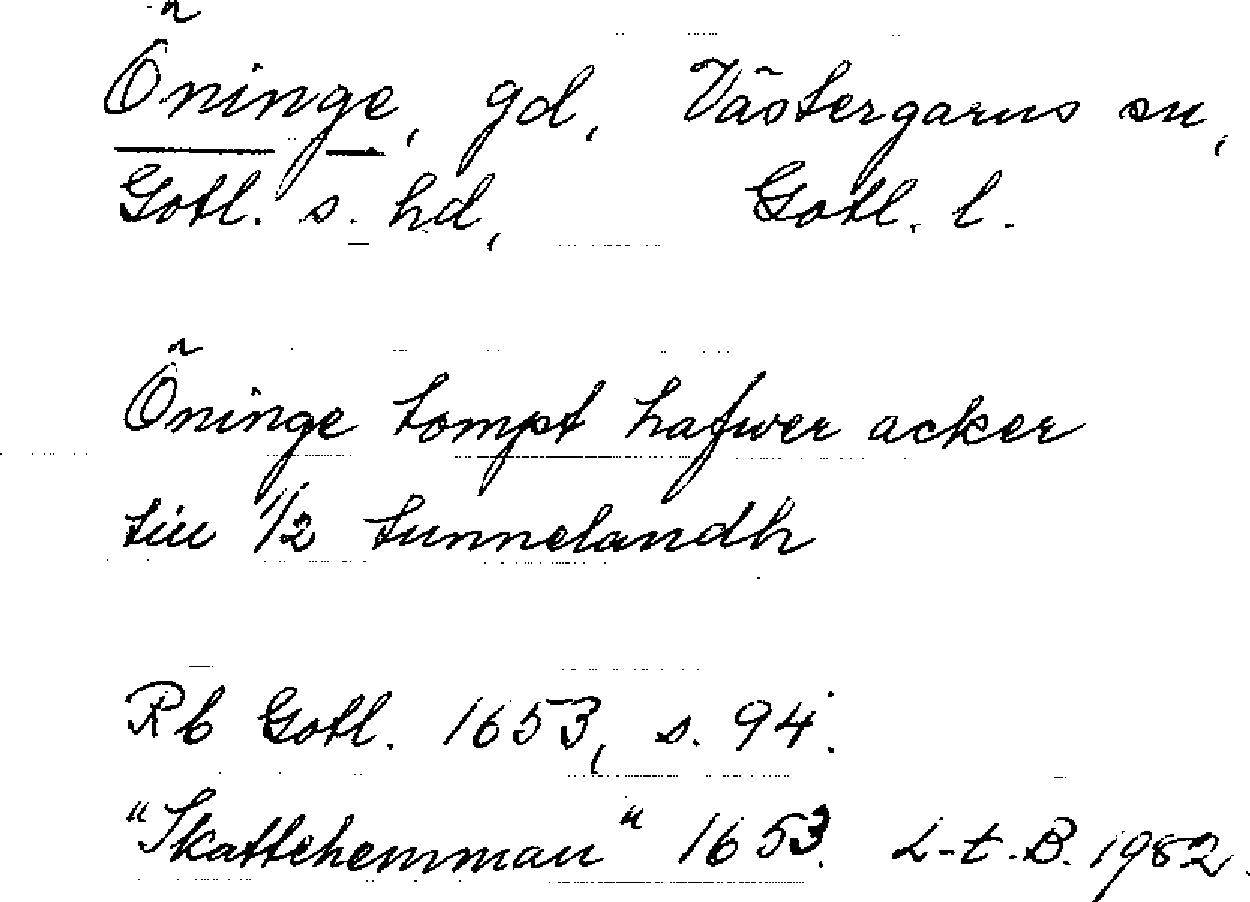 Öninge, gd, Västergarns sn,
Gotl. s. hd, Gotl. l.
Öninge tompt hafwer acker
till 1/2 tunnelandh
Rb Gotl. 1653, s. 94.
"Skattehemman" 1653. L-t.B. 1982.